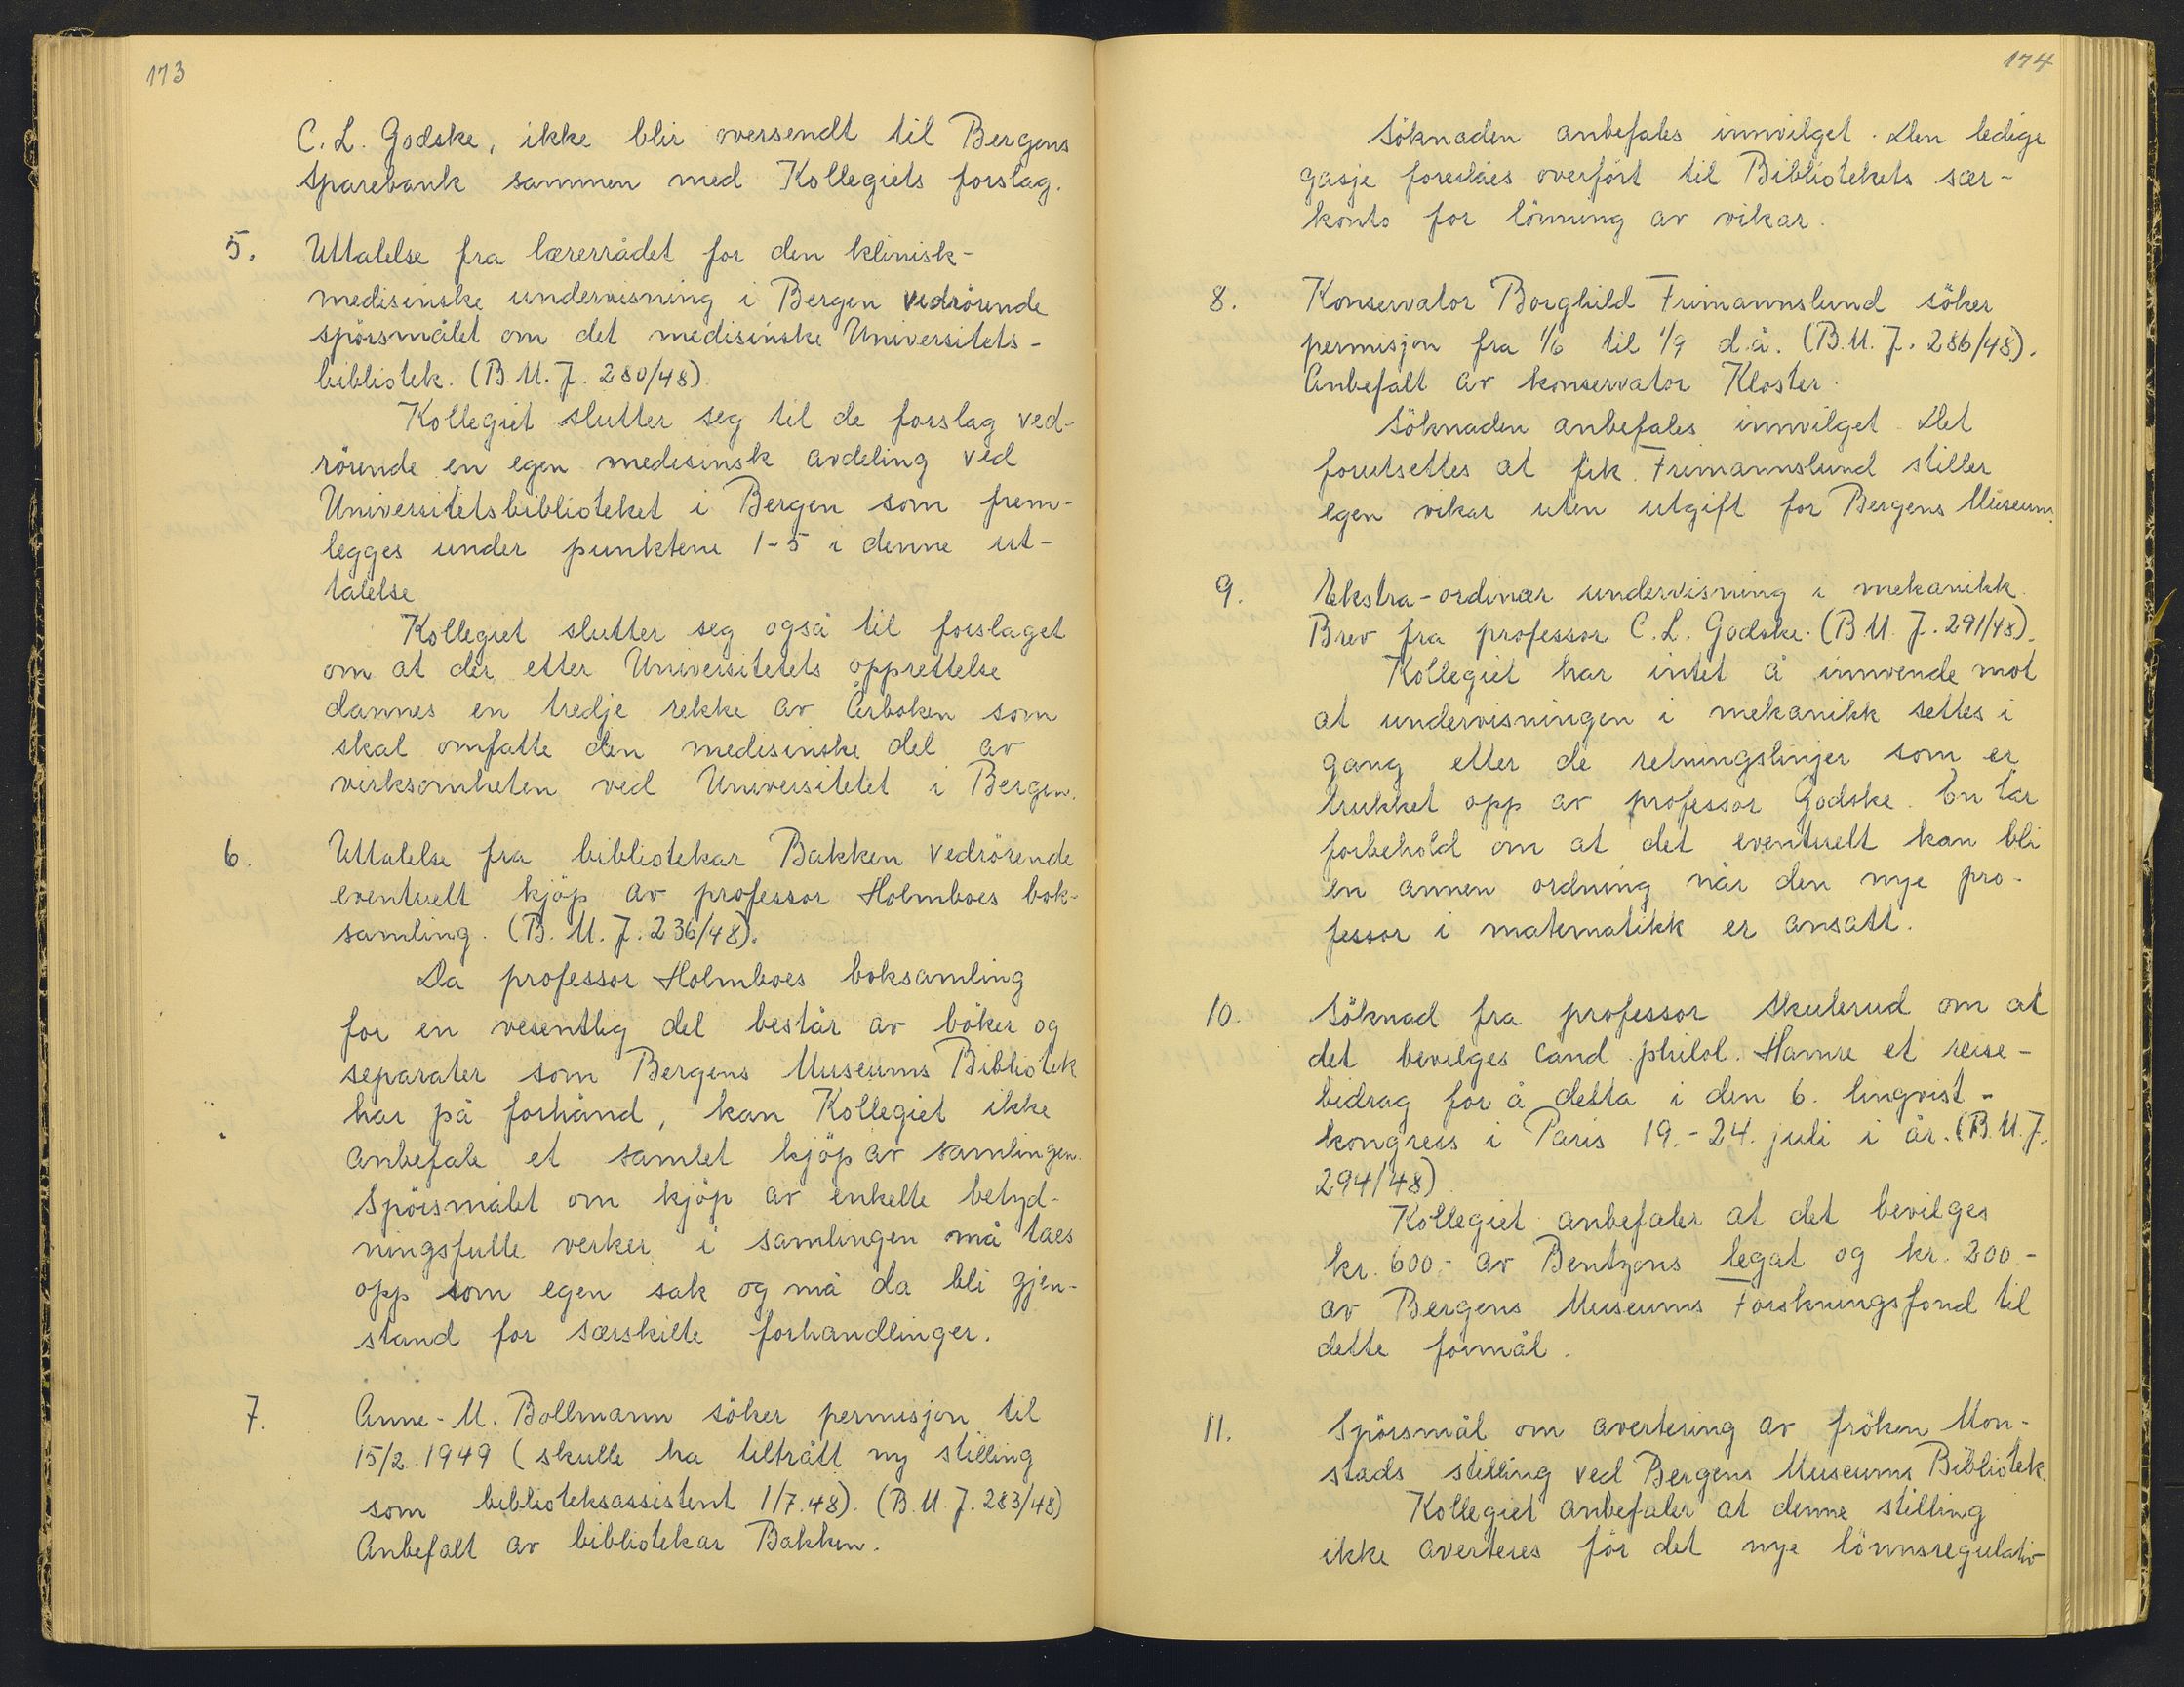 173
C. L. Godske, ikke blir oversendt til Bergens
Sparebank sammen med Kollegiets forslag.
5. Uttalelse fra lærerrådet for den klinisk-
medisinske undervisning i Bergen vedrörende
spörsmålet om det medisinske Universitets-
bibliotek. (B.M.J. 280/48)
Kollegiet slutter seg til de forslag ved-
rörende en egen medisinsk avdeling ved
Universitetsbiblioteket i Bergen som frem-
legges under punktene 1-5 i denne ut-
talelse
Kollegiet slutter seg også til forslaget
om at der etter Universitetets opprettelse
dannes en tredje rekke av Årboken som
skal omfatte den medisinske del av
virksomheten ved Universitetet i Bergen.
6. Uttalelse fra bibliotekar Bakken vedrörende
eventuelt kjöp av professor Holmboes bok-
samling. (B.M.J. 236/48).
Da professor Holmboes boksamling
for en vesentlig del består av böker og
separater som Bergens Museums Bibliotek
har på forhånd, kan Kollegiet ikke
anbefale et samlet kjöp av samlingen.
Spörsmålet om kjöp av enkelte betyd-
ningsfulle verker i samlingen må taes
opp som egen sak og må da bli gjen-
stand for særskilte forhandlinger.
7. Anne-M. Bollmann söker permisjon til
15/2 1949 (skulle ha tiltrått ny stilling
som biblioteksassistent 1/7.48). (B.M.J. 283/48)
Anbefalt av bibliotekar Bakken.
174
Söknaden anbefales innvilget. Den ledige
gasje foreslåes overfört til Bibliotekets sær-
konto for lönning av vikar.
8. Konservator Borghild Frimannslund söker
permisjon fra 1/6 til 1/9 d.å. (B.M.J. 286/48).
Anbefalt av konservator Kloster.
Söknaden anbefales innvilget. Det
forutsettes at frk. Frimannslund stiller
egen vikar uten utgift for Bergens Museum.
9. Ekstra-ordinær undervisning i mekanikk.
Brev fra professor C. L. Godske. (B.M.J. 291/48).
Kollegiet har intet å innvende mot
at undervisningen i mekanikk settes i
gang etter de retningslinjer som er
trukket opp av professor Godske. En tar
forbehold om at det eventuelt kan bli
en annen ordning når den nye pro-
fessor i matematikk er ansatt.
10. Söknad fra professor Skulerud om at
det bevilges cand. philol. Hamre et reise-
bidrag for å delta i den 6. lingvist-
kongress i Paris 19.-24. juli i år. (B.M.J.
294/48)
Kollegiet anbefaler at det bevilges
kr. 600.- av Bentzons legat og kr. 200.-
av Bergens Museums Forskningsfond til
dette formål.
11. Spörsmål om avertering av fröken Mon-
stads stilling ved Bergens Museums Bibliotek.
Kollegiet anbefaler at denne stilling
ikke averteres för det nye lönnsregulativ